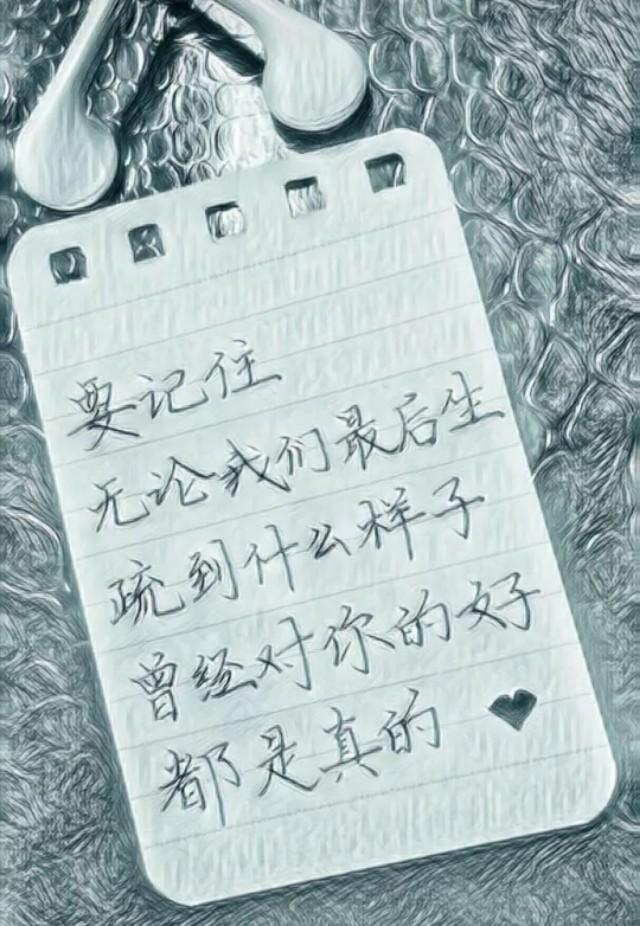 要记住
无论我们最后生
疏到什么样子
曾经对你的好
都是真的